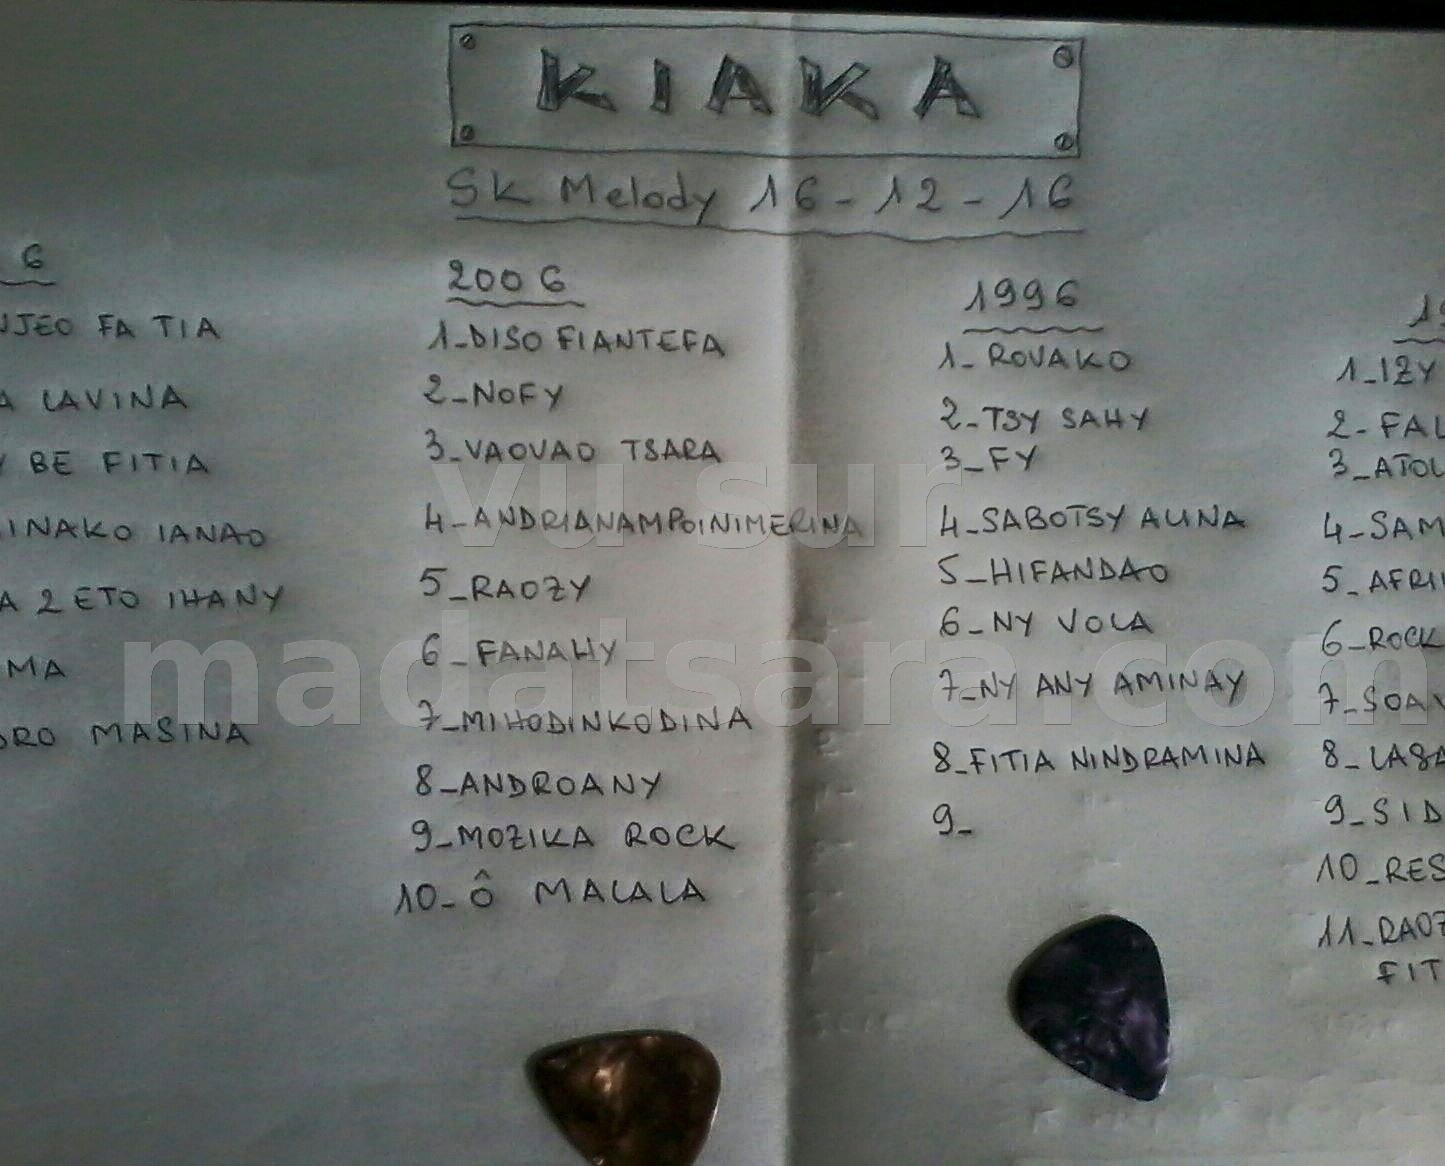 KIAKA
SK Melody 16-12-16
6
FA TIA
LAVINA
BE FITIA
IANAO
2 ETO IHANY
MASINA
2006
1_DISO FIANTEFA
2_NOFY
3_VAOVAO TSARA
4_ANDRIANAMPOINIMERINA
5_RAOZY
6_FANAHY
7_MIHODINKODINA
8_ANDROANY
9_MOZIKA ROCK
10_Ô MALALA
1996
1_ROVAKO
2-TSY SAHY
3_FY
4_SABOTSY ALINA
5_HIFANDAO
6_NY VOLA
7_NY ANY AMINAY
8_FITIA NINDRAMINA
9_
1_IZY
2-FAL
3_ATOL
4-SAM
5_AFRI
6_ROCK
7_SOA
8_LASA
9_SID
10_RES
11_RAOZ
FIT
vu sur
madatsara.com